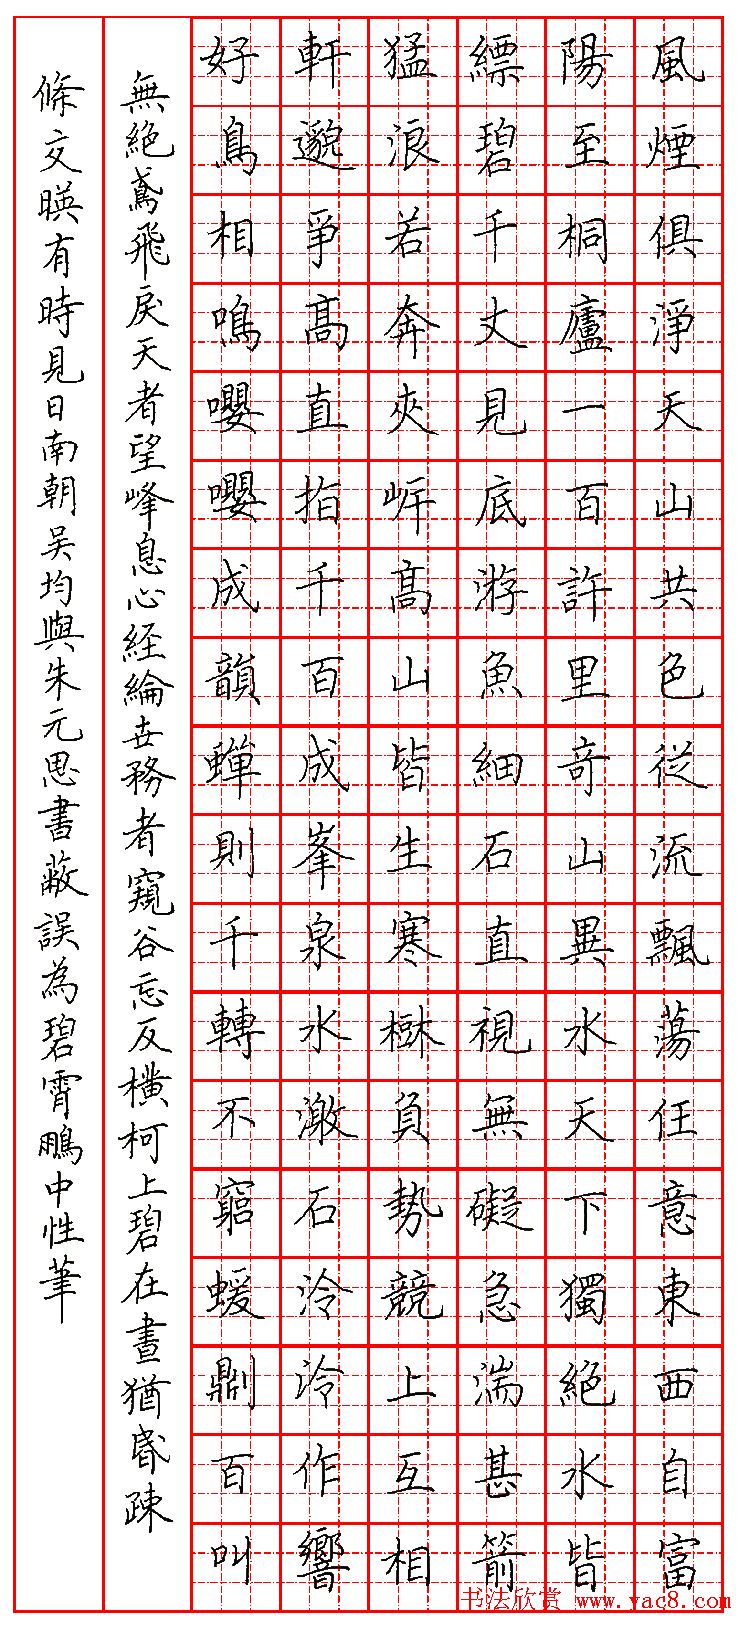 風煙俱淨天山共色從流飄蕩任意東西自富
陽至桐廬一百許里奇山異水天下獨絶水皆
縹碧千丈見底游魚細石直視無礙急湍甚箭
猛浪若奔夾岸髙山皆生寒樹負勢競上互相
軒邈爭髙直指千百成峯泉水激石泠泠作響
好鳥相鳴嚶嚶成韻蟬則千轉不窮蝯𠟭百叫
無絶鳶飛戾天者望峰息心経綸世務者窺谷忘反橫柯上碧在晝猶昏疎
條交暎有時見日南朝吴均與朱元思書蔽誤為碧霄鵬中性筆
书法欣赏 www.yac8.com